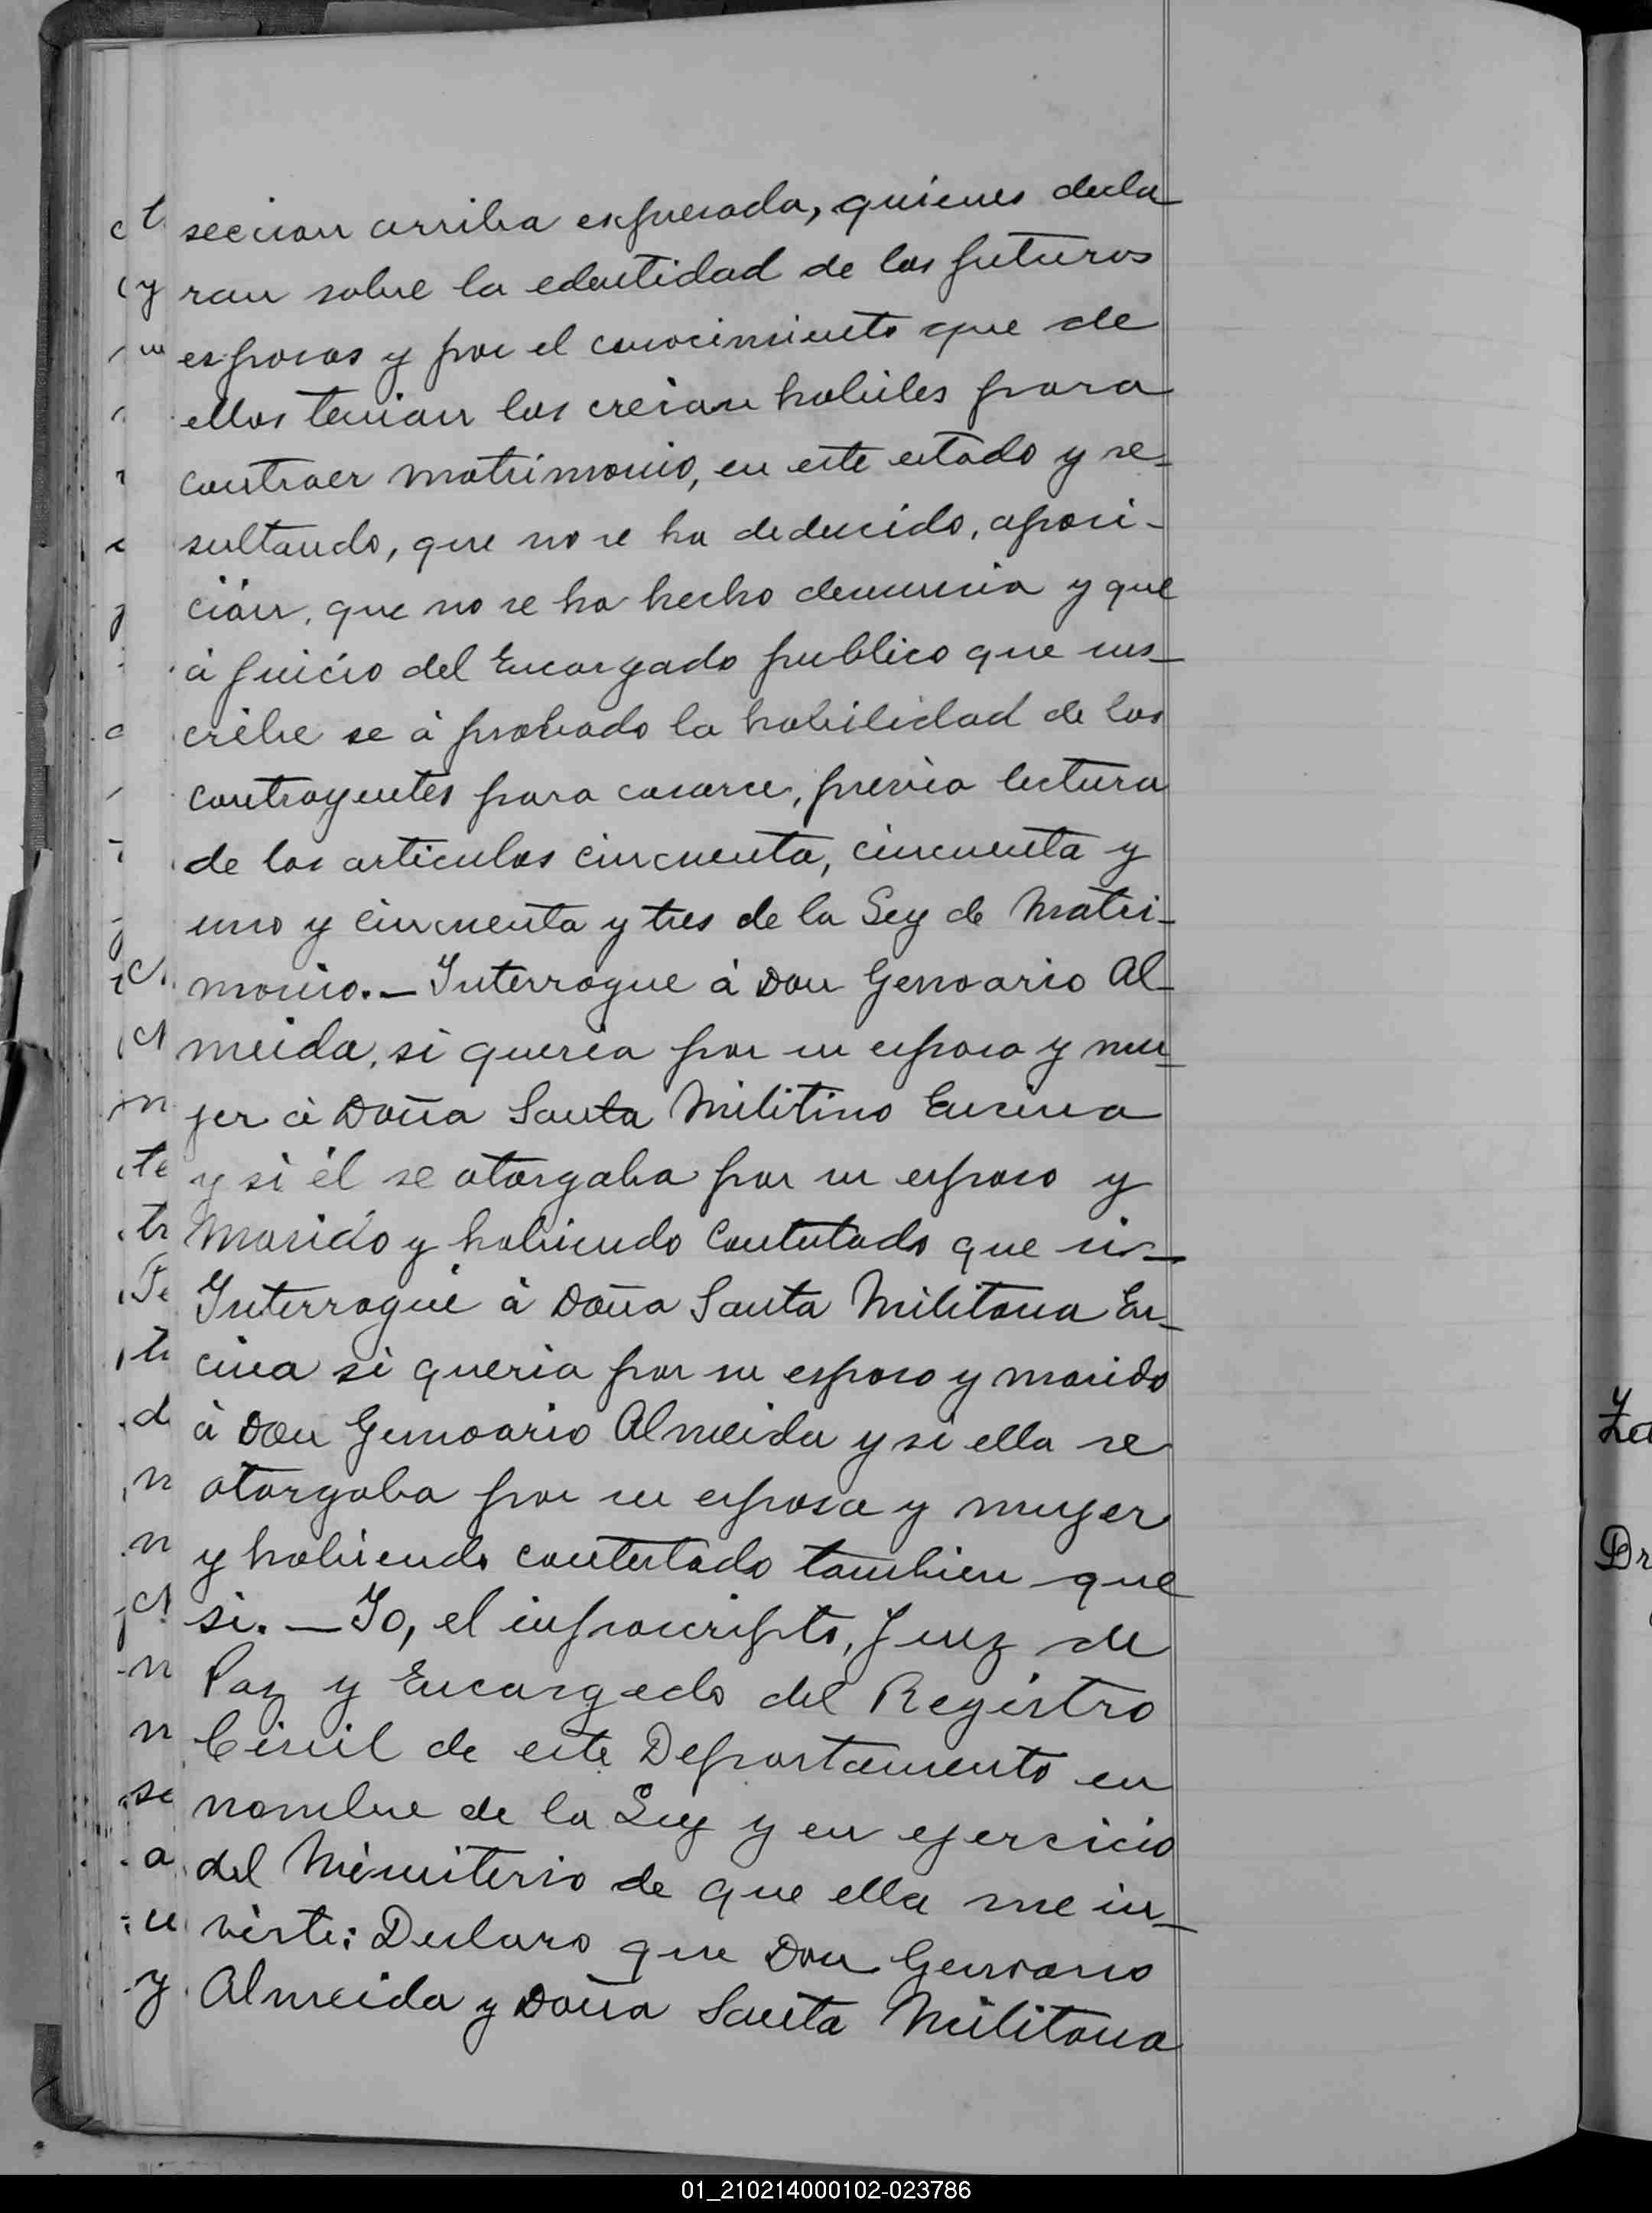 seccion arriba expresada, quienes decla
ran sobre la edentidad de los futuros
esposos y por el conocimiento que de
ellos tenian los creian habiles para
contraer matrimonio, en este estado y re-
sultando, que no se ha deducido, oposi-
ción, que no se ha hecho denuncia y que
á juicio del Encargado publico que ins-
cribe se á probado la habilidad de los
contrayentes para casarce, previa lectura
de los articulos cincuenta, cincuenta y
uno y cincuenta y tres de la Ley de Matri-
monio.— Interrogue á Don Genoario Al-
meida, si queria por su esposa y mu-
jer á Doña Santa Militino Encina
y si él se otorgaba por su esposo y
Marido y habiendo Contestado que si-
Interrogué á Doña Santa Militona En-
cina si queria por su esposo y marido
á Don Genoario Almeida y si ella se
otorgaba por su esposa y mujer
y habiendo contestado tambien que
si.— Yo, el infrascripto, Juez de
Paz y Encargado del Registro
Civil de este Departamento en
nombre de la Ley y en ejercicio
del Ministerio de que ella me in-
viste: Declaro que Don Genoario
Almeida y Doña Santa Militona
01_210214000102-023786